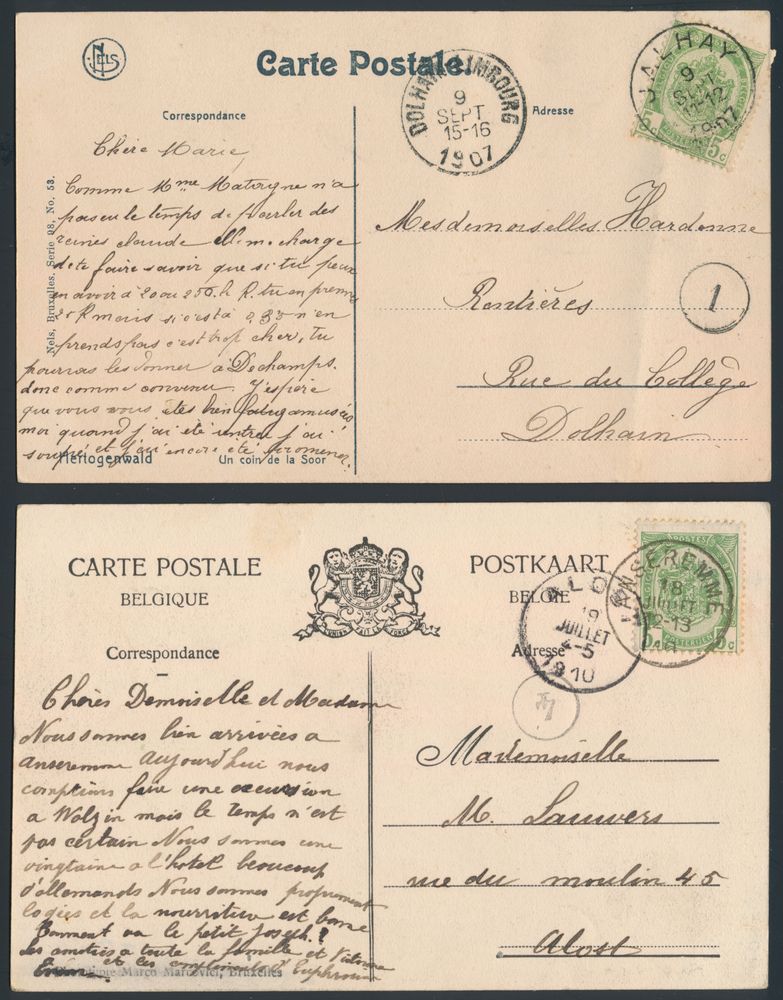 NELS
Carte Postale.
DOLHAIN-LIMBOURG
9
SEPT
15-16
1907
JALHAY
9
SEPT
11-12
1907
5c 5c
Correspondance
Adresse
Nels, Bruxelles, Serie 98, No. 53.
Chère Marie,
Comme Mme Matergne n'a
pas eu le temps de parler des
reines claude elle me charge
de te faire savoir que si tu peux
en avoir à 20 ou 25 le K. tu en prenne
25 K mais si c'est à n'en
prends pas c'est trop cher, tu
pourras les donner à Dechamps.
donc comme convenu. J'espère
que vous vous êtes bien amusées
moi quand j'ai été j'ai
soupé et j'ai encore été promener.
Hertogenwald Un coin de la Soor
Mesdemoiselles Hardenne
1
Rentières
Rue du Collège
Dolhain
CARTE POSTALE
BELGIQUE
Correspondance
L'UNION FAIT LA FORCE
POSTKAART
BELGIE
Adresse
ALO
19
JUILLET
4-5
1910
ANSEREMME
18
JUILLET
12-13
POSTES
POSTERIJEN
5c
Chères Demoiselle et Madame
Nous sommes bien arrivées a
anseremme Aujourd'hui nous
comptions faire une excursion
a Walzin mais le temps n'est
pas certain Nous sommes une
vingtaine a l'hotel beaucoup
d'allemands Nous sommes proprement
logies et la nourriture est bonne
Comment va le petit Joseph?
Les amities a toute la famille et
et les compliments d'
Marco Marcovici, Bruxelles
Mademoiselle
M. Lauwers
rue du moulin 45
Alost